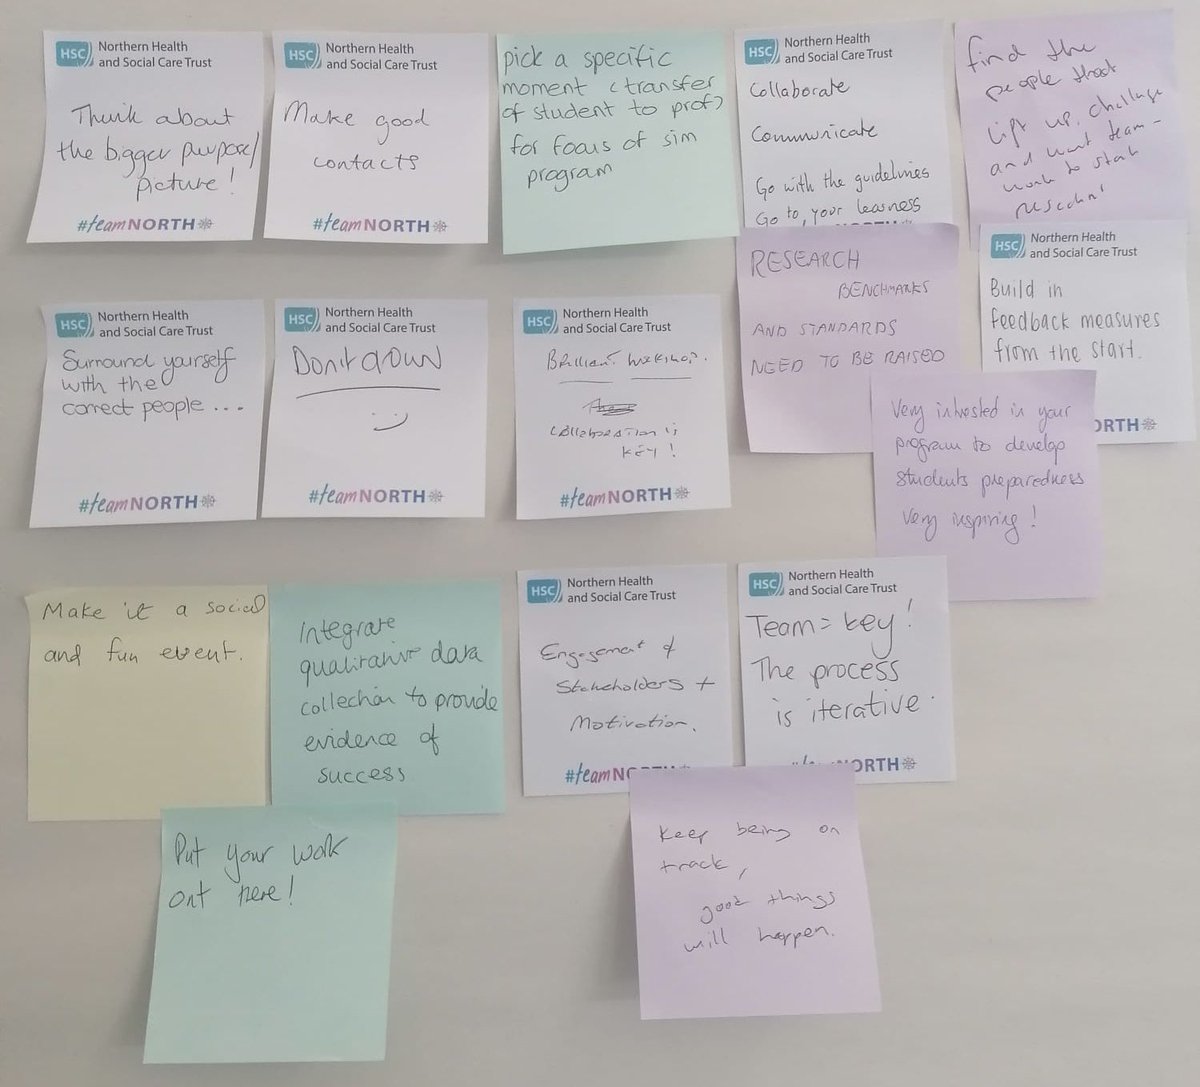 HSC Northern Health
and Social Care Trust
Think about
the bigger purpose/
picture!
#teamNORTH
HSC Northern Health
and Social Care Trust
Make good
contacts
#teamNORTH
pick a specific
moment (transfer
of student to prof)
for focus of sim
program
HSC Northern Health
and Social Care Trust
Collaborate
Communicate
Go with the guidelines
Go to, your
find the
people that
lift up, challenge
and want team-
work to
RESEARCH
BENCHMARKS
AND STANDARDS
NEED TO BE RAISED
HSC Northern Health
and Social Care Trust
Build in
feedback measures
from the start.
ORTH
HSC Northern Health
and Social Care Trust
Surround yourself
with the
correct people ...
#teamNORTH
HSC Northern Health
and Social Care Trust
Don't drown
#teamNORTH
HSC Northern Health
and Social Care Trust
Brilliant workshop.
collaboration is
KEY!
#teamNORTH
Very intrested in your
program to develop
students preparedness
Very inspiring!
Make it a social
and fun event.
Integrate
qualitative data
collection to provide
evidence of
success
HSC Northern Health
and Social Care Trust
Engagement of
Stakeholders +
Motivation.
#teamNO
HSC Northern Health
and Social Care Trust
Team = key!
The process
is iterative.
NORTH
Put your work
out here!
Keep being on
track,
good things
will happen.